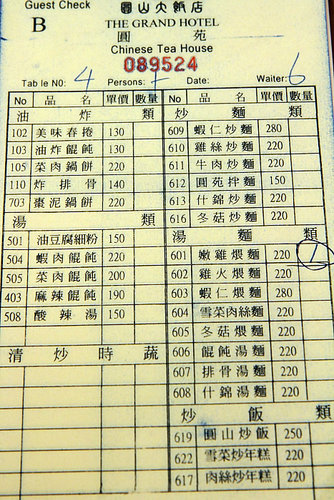 Guest Check
圓山大飯店
B
THE GRAND HOTEL
圓 苑
Chinese Tea House
089524
Table NO: 4 Persons: Date: Waiter: 6
No 品 名 單價 數量
油 炸 類
102 美味春捲 130
103 油炸餛飩 130
105 菜肉鍋餅 220
110 炸排骨 140
703 棗泥鍋餅 220
湯 類
501 油豆腐細粉 150
504 蝦肉餛飩 220
505 菜肉餛飩 200
403 麻辣餛飩 190
508 酸辣湯 150
清 炒 時 蔬
No 品 名 單價 數量
炒 麵 類
609 蝦仁炒麵 280
610 雞絲炒麵 220
611 牛肉炒麵 220
612 圓苑拌麵 150
613 什錦炒麵 220
616 冬菇炒麵 220
湯 麵 類
601 嫩雞煨麵 220 1
602 雞火煨麵 220
603 蝦仁煨麵 280
604 雪菜肉絲麵 220
605 冬菇煨麵 220
606 餛飩湯麵 220
607 排骨湯麵 220
608 什錦湯麵 220
炒 飯 類
619 圓山炒飯 250
622 雪菜炒年糕 220
617 肉絲炒年糕 220